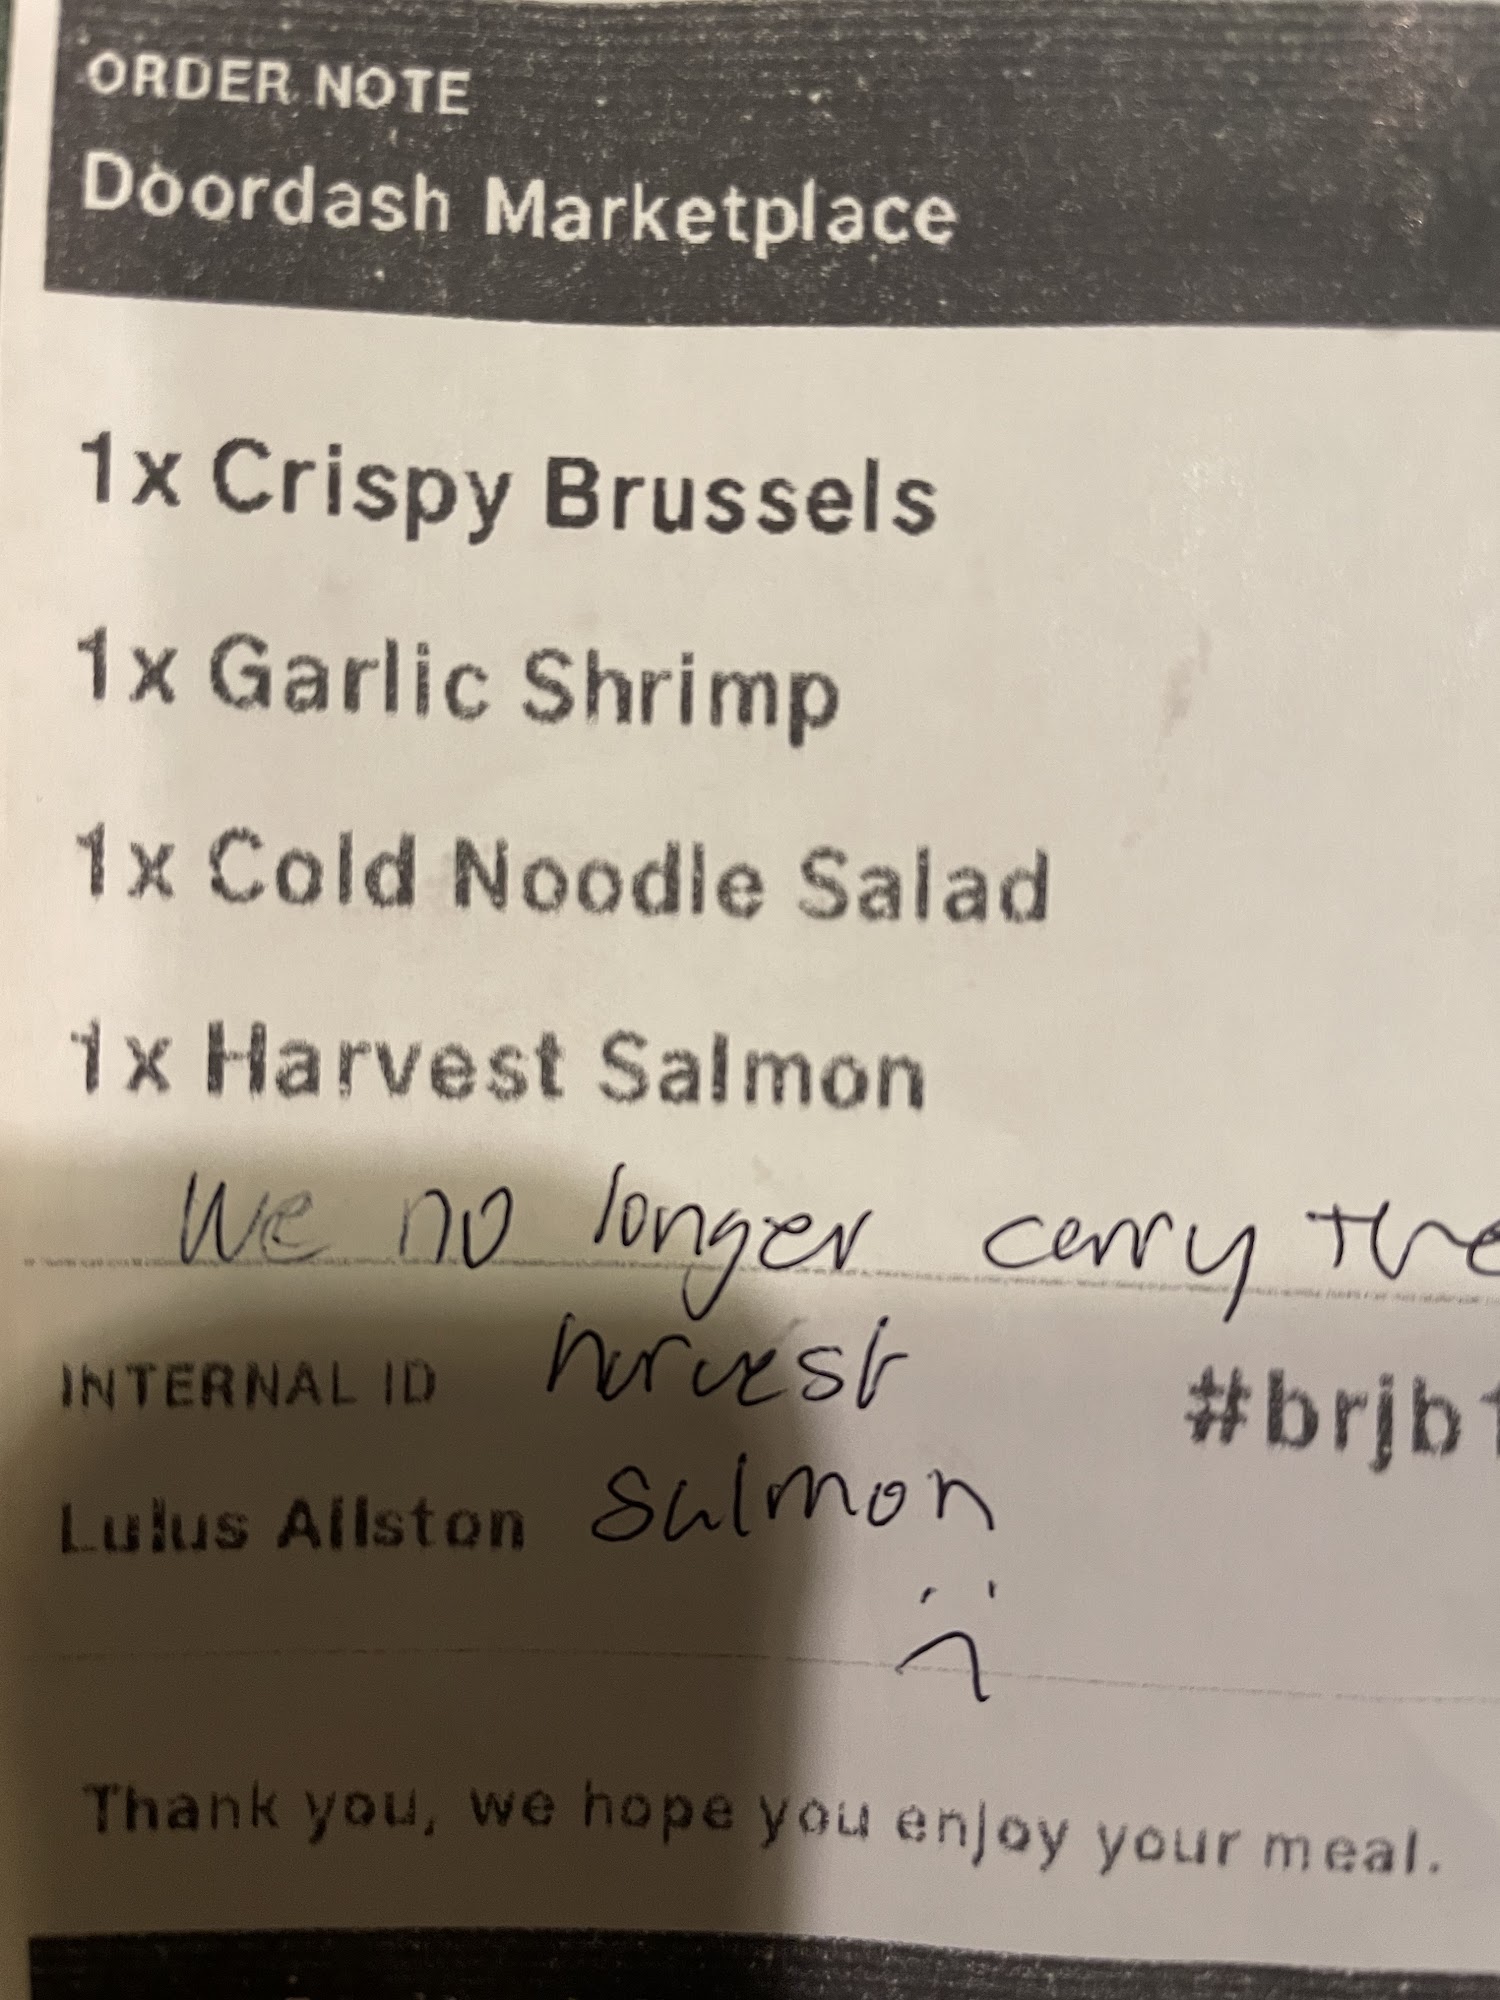 ORDER NOTE
Doordash Marketplace
1x Crispy Brussels
1x Garlic Shrimp
1x Cold Noodle Salad
1x Harvest Salmon
We no longer carry the
harvest
INTERNAL ID
#brjb
Lulus Allston
salmon
:(
Thank you, we hope you enjoy your meal.